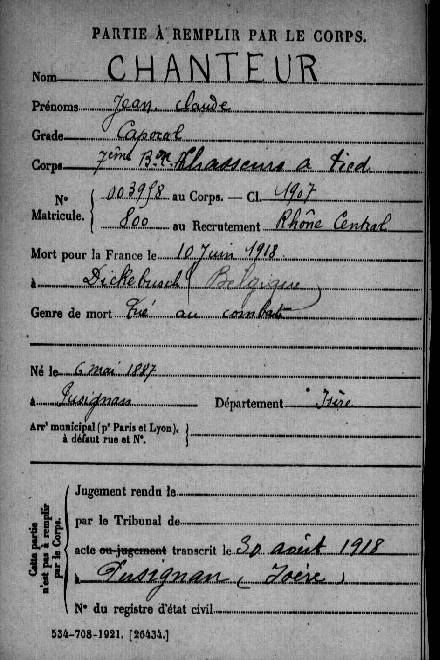 PARTIE À REMPLIR PAR LE CORPS.
Nom CHANTEUR
Prénoms Jean Claude
Grade Caporal
Corps 7ème B.on Chasseurs a Pied
N° Matricule. 003958 au Corps. — Cl. 1907
800 au Recrutement Rhône Central
Mort pour la France le 10 Juin 1918
à Dickebusch (Belgique)
Genre de mort Tué au combat
Né le 6 mai 1887
à Pusignan Département Isère
Arrt municipal (pr Paris et Lyon),
à défaut rue et N°.
Cette partie n'est pas à remplir par le Corps.
Jugement rendu le
par le Tribunal de
acte ou jugement transcrit le 30 août 1918
à Pusignan (Isère)
N° du registre d'état civil
534-708-1921. [26434.]